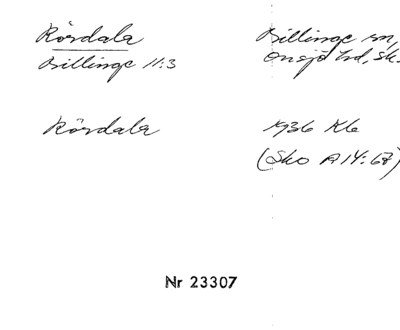 Rördala
Billinge 11:3
Billinge sn,
Onsjö hd, Sk.
Rördala
1936 Kb
(Sko A14:68)
Nr 23307